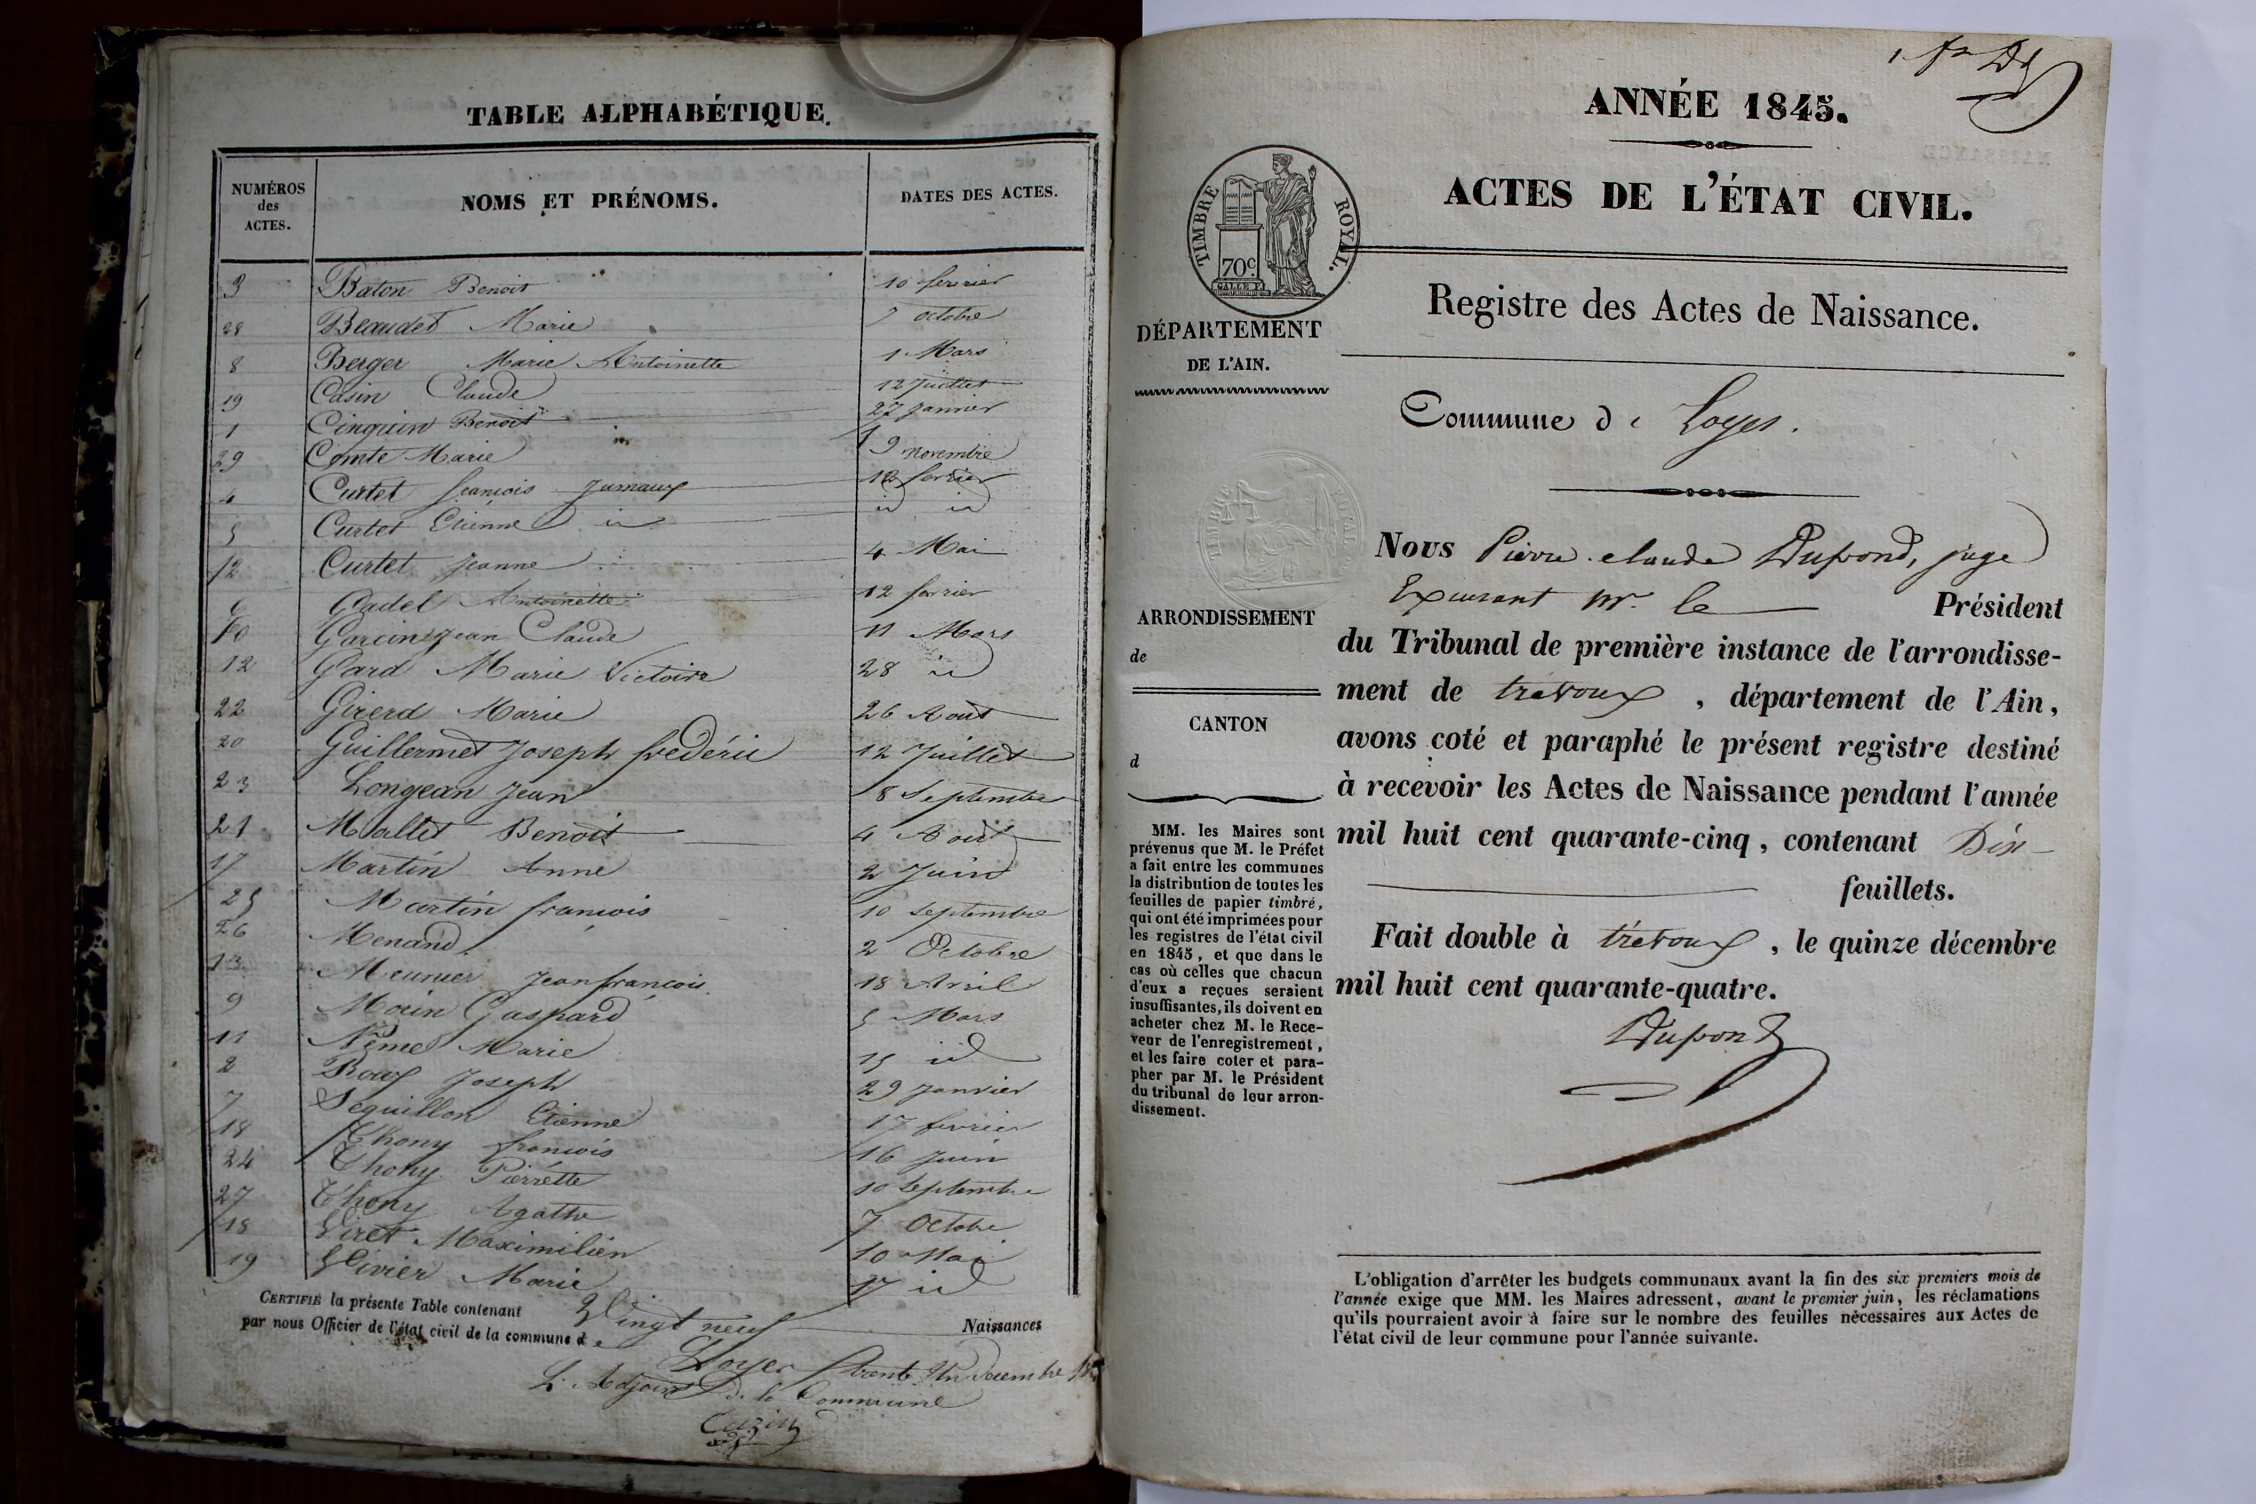 TABLE ALPHABÉTIQUE.
NUMÉROS
des
ACTES.
NOMS ET PRÉNOMS.
DATES DES ACTES.
3 Baton Benoit 10 fevrier
28 Beaudet Marie 7 octobre
8 Berger Marie Antoinette 1 Mars
19 Casin Claude 12 Juillet
1 Cinquin Benoit 22 Janvier
29 Comte Marie 19 novembre
4 Curtet françois Jumaux 12 fevrier
5 Curtet Etienne id id id
12 Curtet Jeanne 4 Mai
6 Gadel Antoinette 12 fevrier
10 Garcin Jean Claude 11 Mars
12 Gard Marie Victoire 28 id
22 Girerd Marie 26 Aout
20 Guillermet Joseph frederic 12 Juillet
23 Longean Jean 8 Septembre
21 Mallet Benoit 4 Aout
17 Martin Anne 2 Juin
25 Martin françois 10 septembre
26 Menand 2 Octobre
13 Meunier Jean françois 18 Avril
9 Morin Gaspard 5 Mars
11 Nême Marie 15 id
2 Roux Joseph 29 Janvier
7 Seguillon Etienne 17 fevrier
18 Thony françois 16 juin
24 Thony Pierrette 10 septembre
27 Thony Agathe 7 Octobre
18 Viret Maximilien 10 Mai
19 Vivier Marie 17 id
CERTIFIÉ la présente Table contenant Vingt neuf Naissances
par nous Officier de l'état civil de la commune de Loyes trente un decembre
L'Adjoint de la Commune
Cazin
ANNÉE 1845.
ACTES DE L'ÉTAT CIVIL.
TIMBRE ROYAL.
70c
Registre des Actes de Naissance.
DÉPARTEMENT
DE L'AIN.
Commune de Loyes.
ARRONDISSEMENT
de
CANTON
d
MM. les Maires sont
prévenus que M. le Préfet
a fait entre les communes
la distribution de toutes les
feuilles de papier timbré,
qui ont été imprimées pour
les registres de l'état civil
en 1845, et que dans le
cas où celles que chacun
d'eux a reçues seraient
insuffisantes, ils doivent en
acheter chez M. le Rece-
veur de l'enregistrement,
et les faire coter et para-
pher par M. le Président
du tribunal de leur arron-
dissement.
Nous Pierre claude Dupond, juge
Expensant mr. le Président
du Tribunal de première instance de l'arrondisse-
ment de trévoux, département de l'Ain,
avons coté et paraphé le présent registre destiné
à recevoir les Actes de Naissance pendant l'année
mil huit cent quarante-cinq, contenant Dix
feuillets.
Fait double à trévoux, le quinze décembre
mil huit cent quarante-quatre.
Dupond
L'obligation d'arrêter les budgets communaux avant la fin des six premiers mois de
l'année exige que MM. les Maires adressent, avant le premier juin, les réclamations
qu'ils pourraient avoir à faire sur le nombre des feuilles nécessaires aux Actes de
l'état civil de leur commune pour l'année suivante.